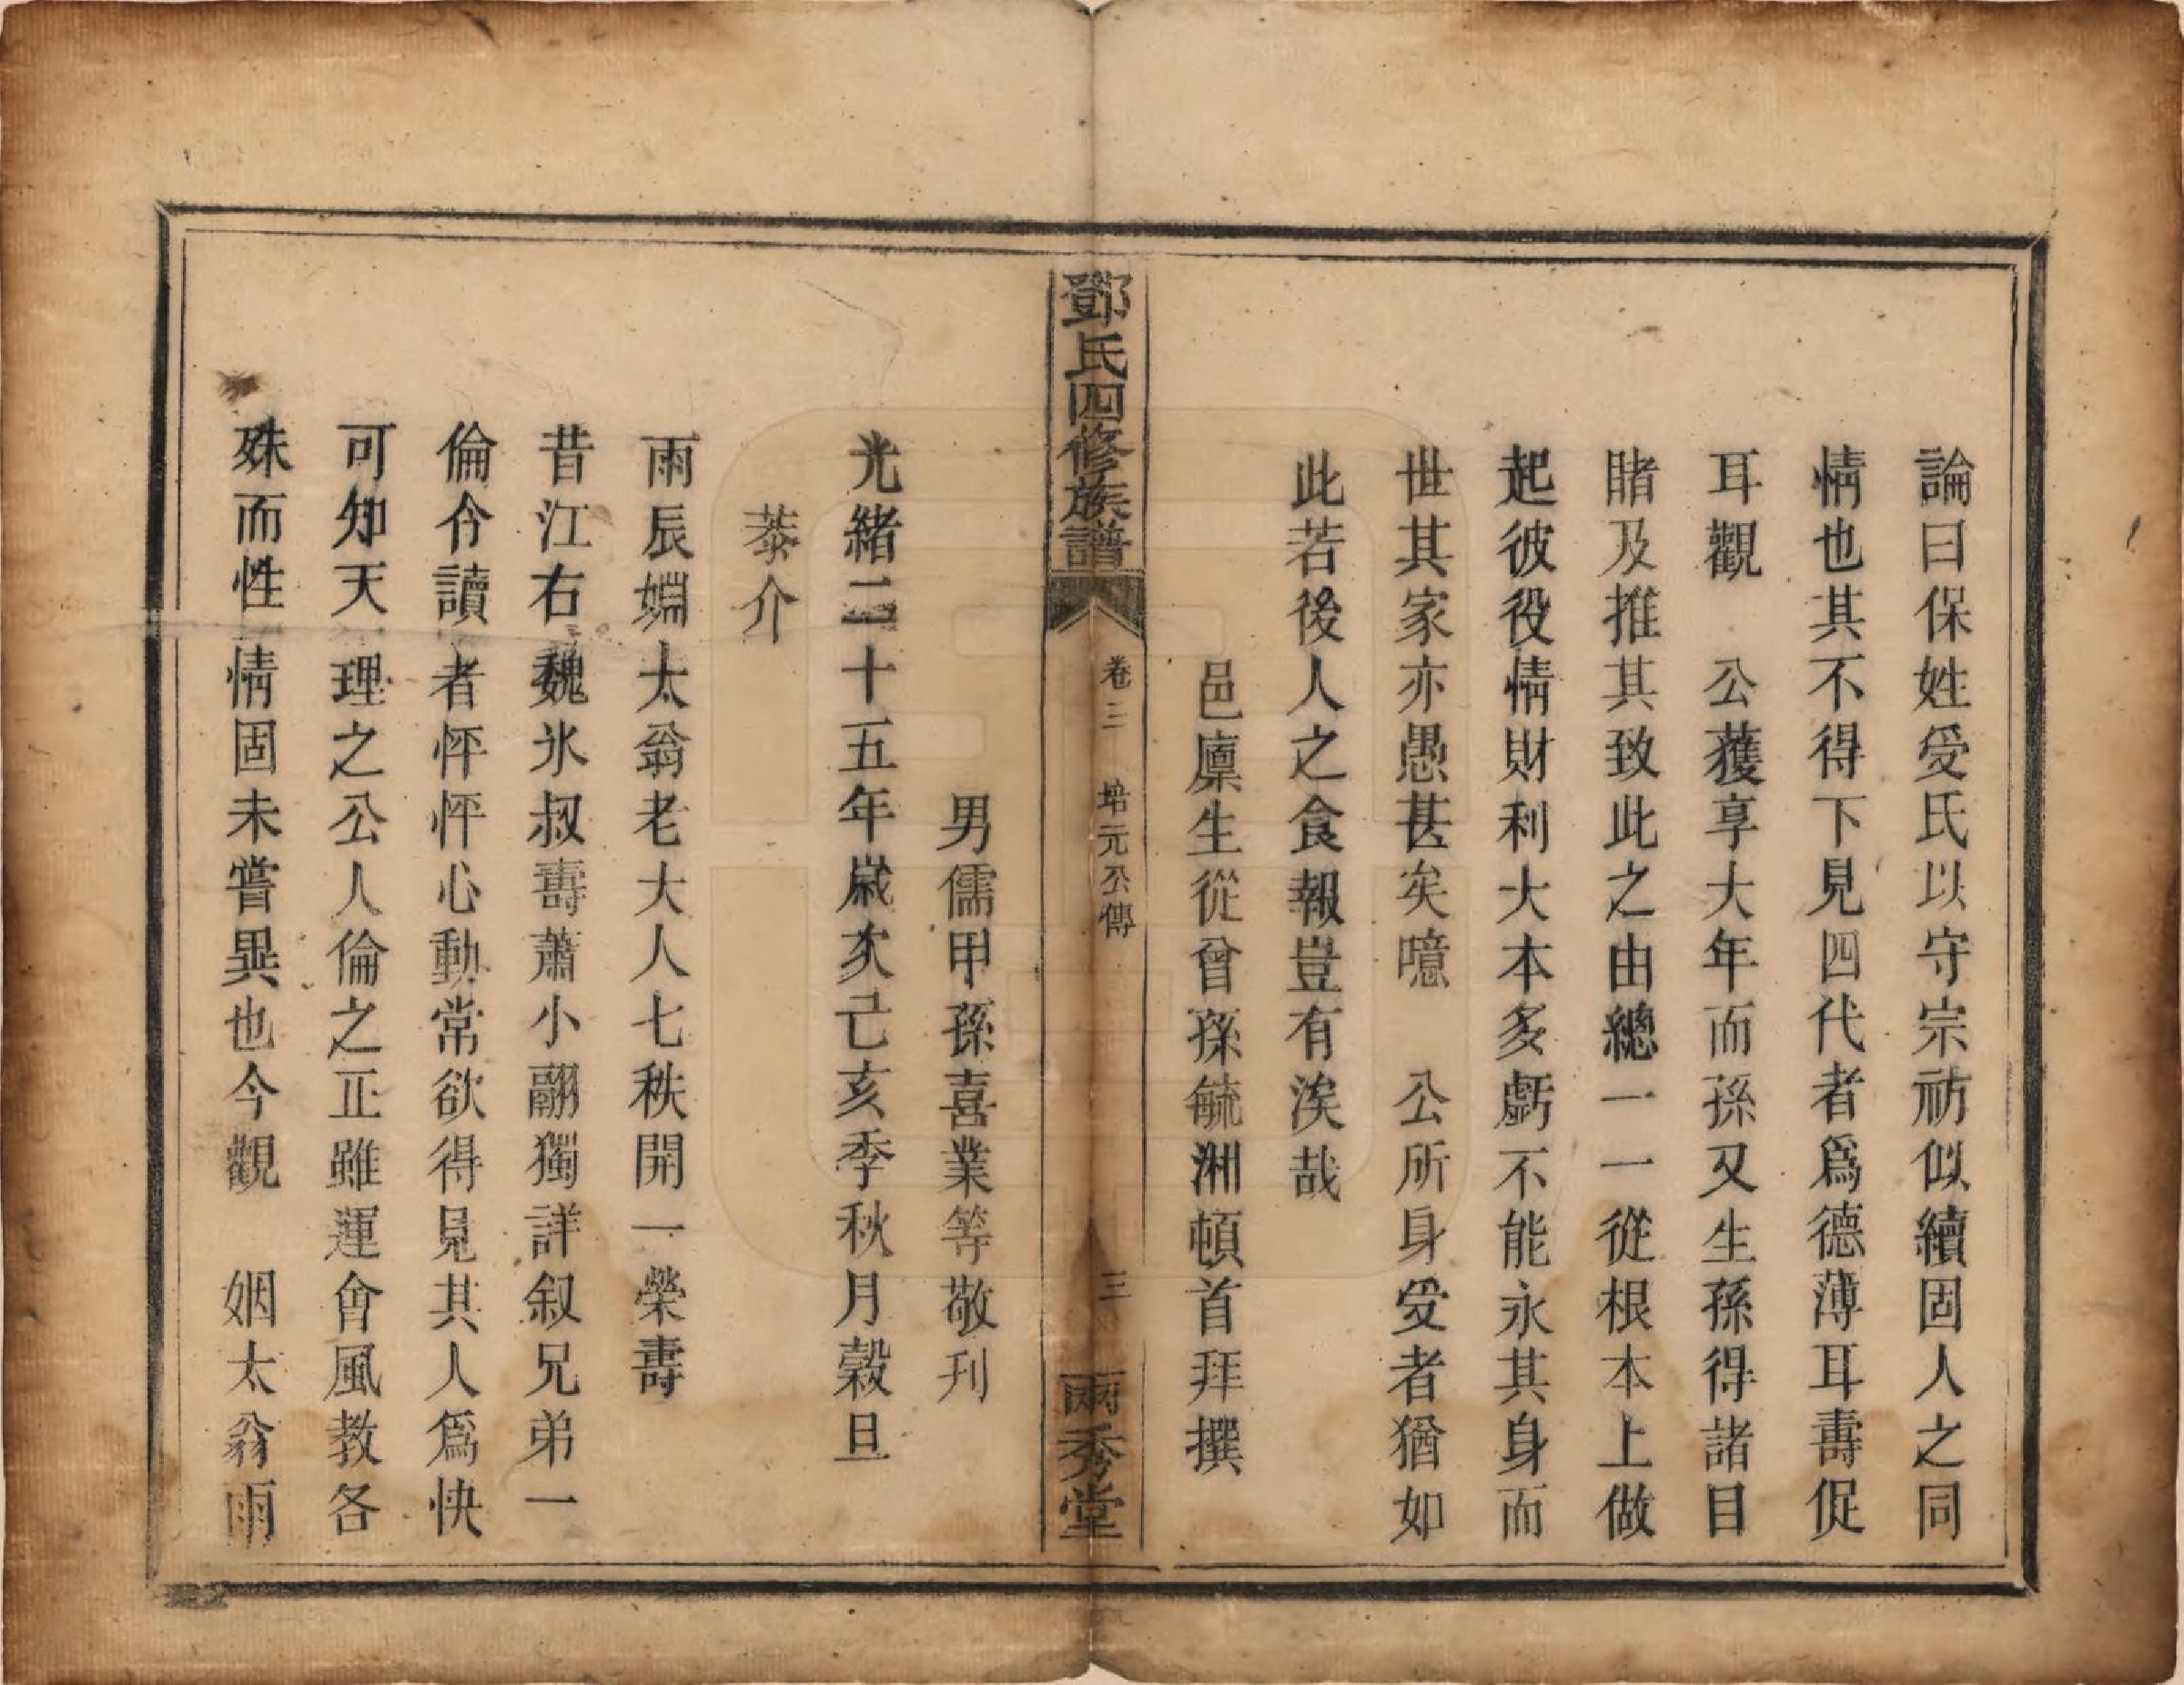 論曰保姓受氏以守宗祊似續固人之同
情也其不得下見四代者爲德薄耳壽促
耳觀　公獲享大年而孫又生孫得諸目
賭及推其致此之由總一一從根本上做
起彼役情財利大本多虧不能永其身而
世其家亦愚甚矣噫　公所身受者猶如
此若後人之食報豈有涘哉
邑廩生從曾孫毓洲頓首拜撰
鄧氏四修族譜
卷三　培元公傳
三
兩秀堂
男儒甲孫喜業等敬刋
光緒二十五年嵗次己亥季秋月穀旦
恭介
雨辰婣太翁老大人七秩開一榮壽
昔江右魏氷叔壽蕭小翮獨詳叙兄弟一
倫令讀者怦怦心動常欲得見其人爲快
可知天理之公人倫之正雖運會風教各
殊而性情固未嘗異也今觀　姻太翁雨